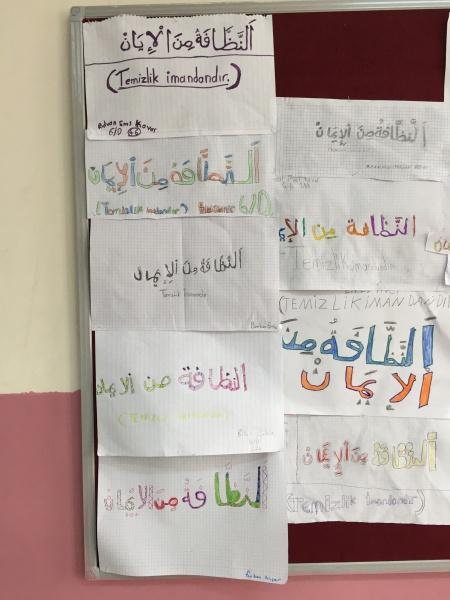 اَلنَّظَافَةُ مِنَ الْإِيمَانِ
(Temizlik imandandır.)
6/D
اَلنَّظَافَةُ مِنَ الْإِيمَانِ
(Temizlik imandandır) 6/D
اَلنَّظَافَةُ مِنَ الْإِيمَانِ
Temizlik imandandır
النظافة من الايمان
(TEMİZLİK İMANDANDIR)
اَلنَّظَّافَةُ مِنَ الْإِيمَانِ
اَلنَّظَافَةُ مِنَ الْإِيمَانِ
اَلنَّظَافَة مِنَ الإي
Temizlik imandandır
(TEMİZLİK İMANDANDIR
اَلنَّظَّافَةُ مِنَ
اَلْإِيمَانْ
اَلنَّظَافَةُ مِنَ الْإِيمَانِ
(Temizlik imandandır)